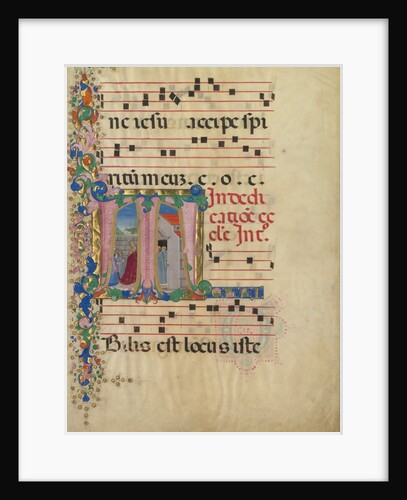 ne iesu accipe spi
ritum meuz . c . o . c .
In dedi
catiōe ec
cl'ie Int°.
T
Bilis est locus iste